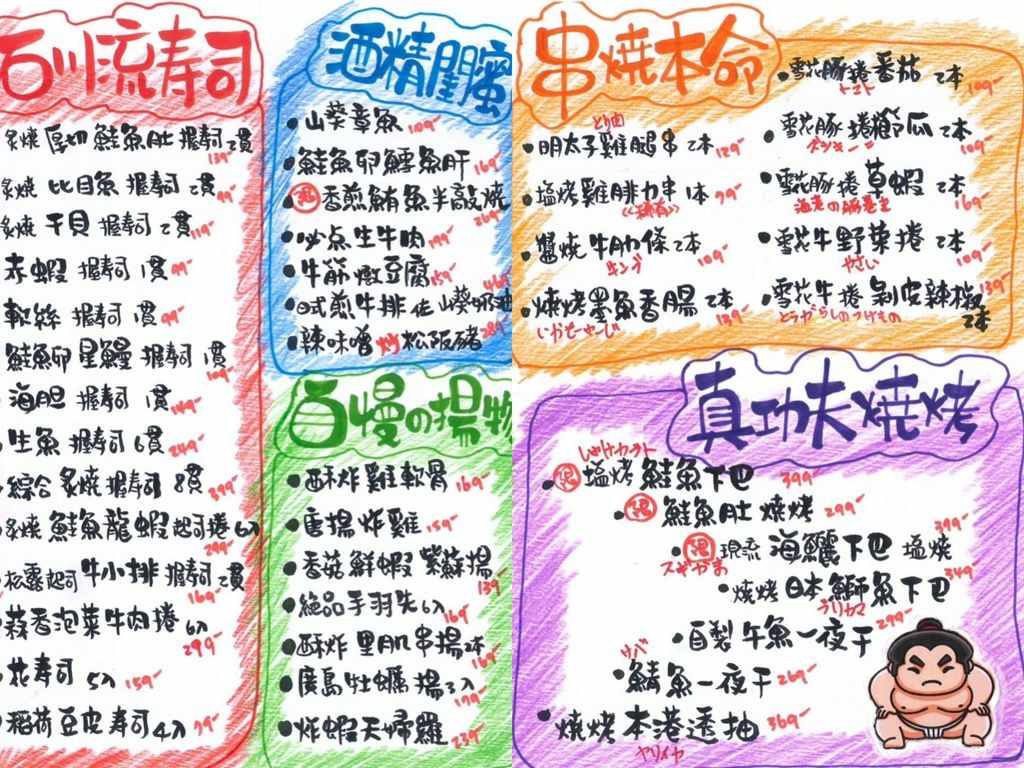 石川流寿司
炙燒 厚切 鮭魚肚 握寿司 2貫 139-
炙燒 比目魚 握寿司 2貫 99-
炙燒 干貝 握寿司 2貫 119-
赤蝦 握寿司 1貫 99-
軟絲 握寿司 1貫 99-
鮭魚卵 星鰻 握寿司 1貫
海胆 握寿司 1貫 149-
生魚 握寿司 6貫 249-
綜合 炙燒 握寿司 8貫 399-
炙燒 鮭魚龍蝦 起司捲 6入 299-
松露起司 牛小排 握寿司 2貫 169-
蒜香泡菜牛肉捲 6入 299-
花寿司 5入 159-
稻荷豆皮寿司 4入 99-
酒精閨蜜
山葵章魚 109-
鮭魚卵鱈魚肝 169-
香煎鮪魚半敲燒 269-
必点生牛肉 199-
牛筋燉豆腐 159-
日式煎牛排佐山葵奶油
辣味噌炒松阪豬 289-
自慢の揚物
酥炸雞軟骨 169-
唐揚炸雞 159-
香菇鮮蝦紫蘇揚 139-
絕品手羽先 6入 169-
酥炸里肌串揚 2本 169-
廣島牡蠣揚 3入 179-
炸蝦天婦羅 239-
串燒本命
とり肉
明太子雞腿串 2本 129-
塩烤雞腓力串 1本 99-
<<稀有>>
醬燒牛肋條 2本 109-
キング
燒烤墨魚香腸 2本 139-
いかそーせーじ
雪花豚捲番茄 2本 109-
トマト
雪花豚捲櫛瓜 2本 109-
雪花豚捲草蝦 2本 169-
海老の豚巻き
雪花牛野菜捲 2本 109-
やさい
雪花牛捲剝皮辣椒 2本 139-
とうがらしのつけもの
真功夫燒烤
塩烤鮭魚下巴 399-
鮭魚肚燒烤 299-
現流海鱺下巴塩燒 399-
スギかま
燒烤日本鰤魚下巴 349-
ブリカマ
自製午魚一夜干 299-
サバ
鯖魚一夜干 269-
燒烤本港透抽 369-
ヤリイカ